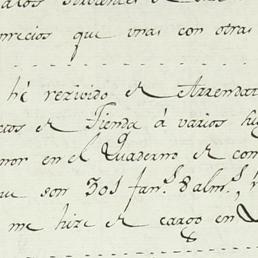 precios que unas con otras
he rezivido de Arrendat
de Tienda á varios
en el Quaderno de com
son 301 fan.s 8 alm.s,
me hize de cargo en